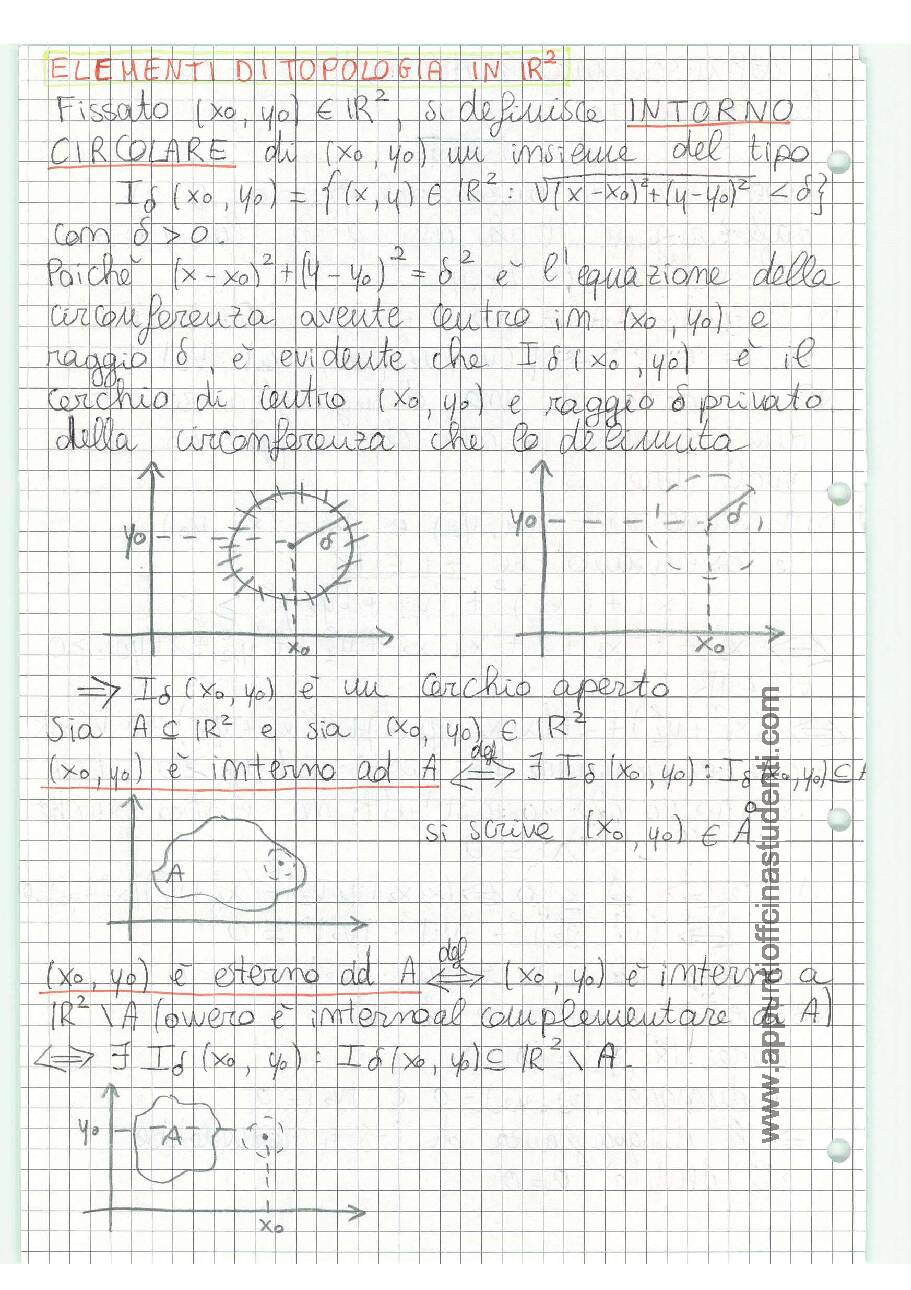 ELEMENTI DI TOPOLOGIA IN IR²
Fissato (x₀, y₀) ∈ IR², si definisce INTORNO
CIRCOLARE di (x₀, y₀) un insieme del tipo
I_δ (x₀, y₀) = {(x, y) ∈ IR² : √(x-x₀)²+(y-y₀)² < δ}
con δ > 0.
Poiché (x-x₀)²+(y-y₀)² = δ² è l'equazione della
circonferenza avente centro in (x₀, y₀) e
raggio δ, è evidente che I_δ (x₀, y₀) è il
cerchio di centro (x₀, y₀) e raggio δ privato
della circonferenza che lo delimita
y₀ δ x₀
y₀ δ x₀
⇒ I_δ (x₀, y₀) è un cerchio aperto
Sia A ⊆ IR² e sia (x₀, y₀) ∈ IR²
(x₀, y₀) è interno ad A ⇔def ∃ I_δ (x₀, y₀) : I_δ (x₀, y₀) ⊆ A
si scrive (x₀, y₀) ∈ Å
A
(x₀, y₀) è esterno ad A ⇔def (x₀, y₀) è interno a
IR² \ A (ovvero è interno al complementare di A)
⇔ ∃ I_δ (x₀, y₀) : I_δ (x₀, y₀) ⊆ IR² \ A.
y₀ A x₀
www.appuntioffcinastudenti.com